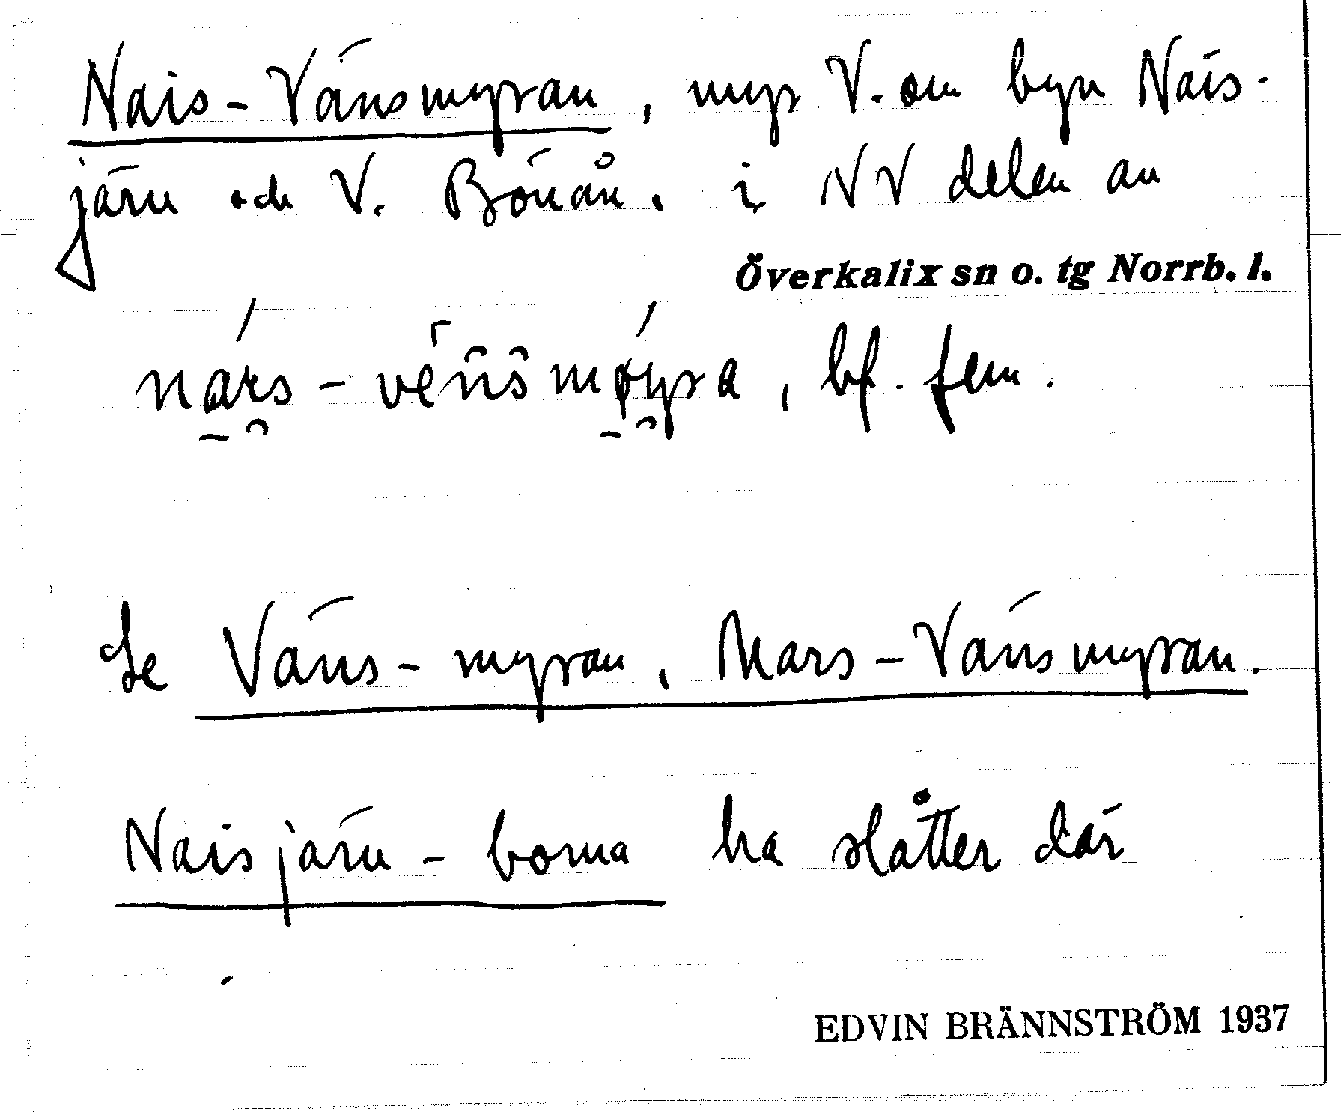 Nais-Vänsmyran, myr V. om byn Nais-
järv och V. Bönån. i NV delen av
Överkalix sn o. tg Norrb. l.
bf. fem.
Se Väns-myran, Mars-Vänsmyran.
Naisjärv-borna ha slåtter där
EDVIN BRÄNNSTRÖM 1937